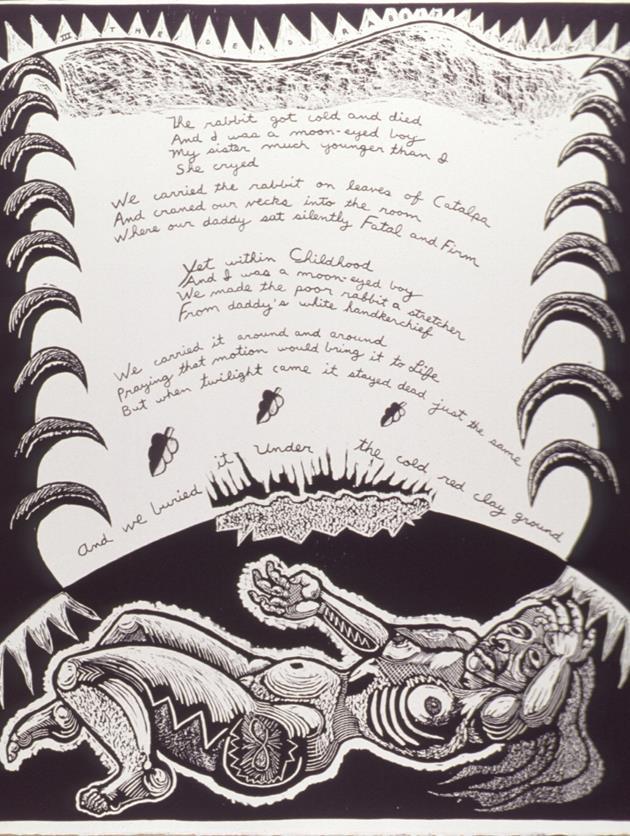 III THE DEAD RABBIT
The rabbit got cold and died
And I was a moon-eyed boy
My sister much younger than I
She cryed
We carried the rabbit on leaves of Catalpa
And craned our necks into the room
Where our daddy sat silently Fatal and Firm
Yet within Childhood
And I was a moon-eyed boy
We made the poor rabbit a stretcher
From daddy's white handkerchief
We carried it around and around
Praying that motion would bring it to Life
But when twilight came it stayed dead just the same
And we buried it Under the cold red clay ground